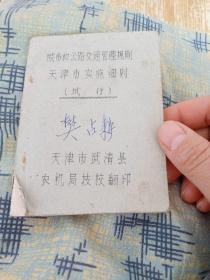 城市和公路交通管理规则
天津市实施细则
(试行)
天津市武清县
农机局技校翻印